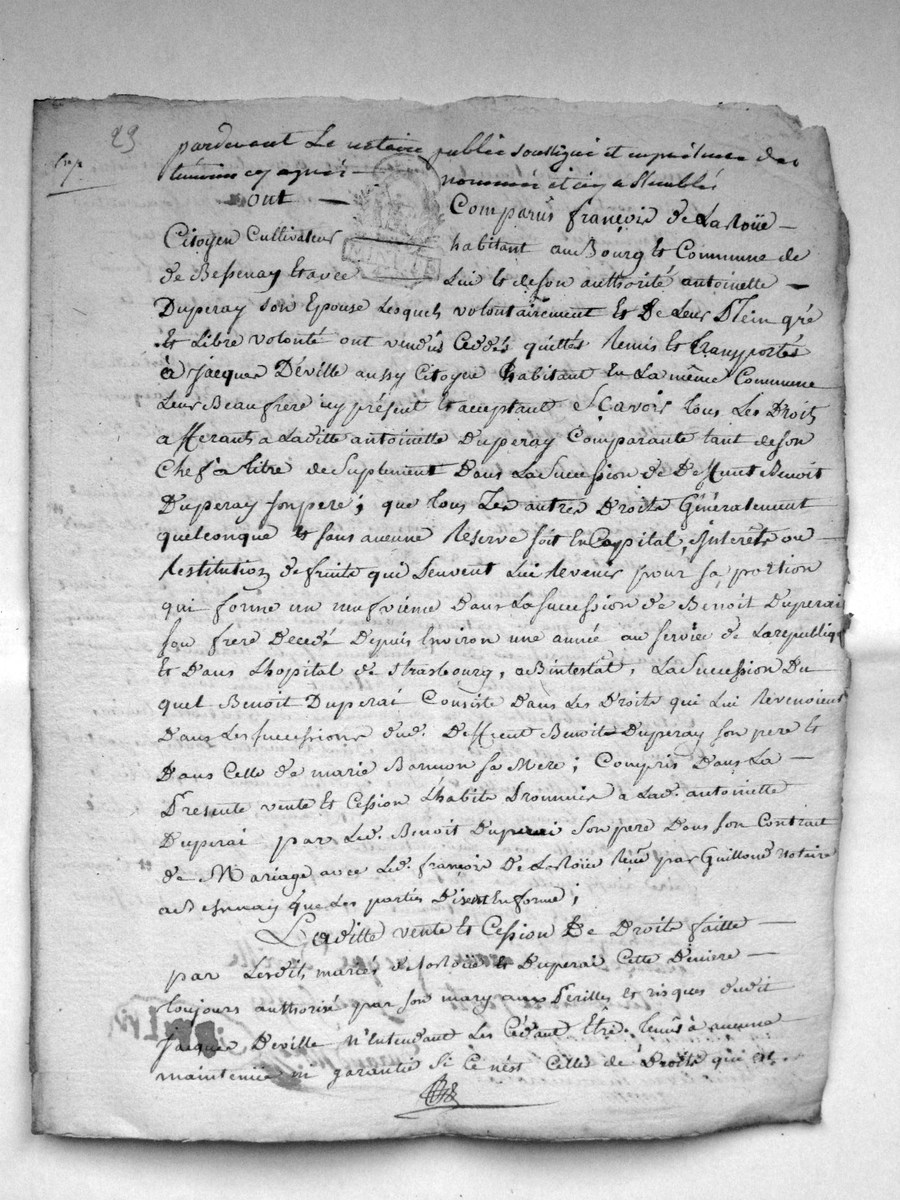 23
pardevant Le notaire public soussigné et en présence des
témoins cy après nommés et icy assemblés
ont Comparus françois de LaRoüe
Citoyen Cultivateur habitant au Bourg et Commune de
de Bessenay et avec Lui et de son authorité antoinette
Duperay son Epouse Lesquels volontairement et De Leur Plein gré
et Libre volonté ont vendus Cedés quittés Remis et transportés
à jacques Déville aussy Citoyen habitant En La même Commune
Leur Beaufrere icy présent et aceptant Sçavoir tous Les Droits
afferants a Laditte antoinette Duperay Comparante tant de son
Chef à titre de Suplement Dans La Succession de Deffunt Benoit
Duperay son pere ; que tous Les autres Droits Généralement
quelconque et sans aucune Reserve soit en Capital, Interets ou
Restitution de fruits qui peuvent Lui Revenir pour sa portion
qui forme un neufvieme Dans La succession de Benoit Duperai
son frere Decedé Depuis Environ une année au service de La republiq
et Dans L'hopital de strasbourg, abintestat, La Succession Du
quel Benoit Duperai Consiste Dans Les Droits qui Lui Revenoient
Dans Les successions dud. Deffunt Benoit Duperay son pere et
Dans Celle de marie Bonnon sa Mere ; Compris Dans La
Presente vente et Cession L'habit Promis a Lad. antoinette
Duperai par Led. Benoit Duperai son pere Dans son Contrait
de Mariage avec Led. françois De LaRoüe Reçu par Guilloud Notaire
a Bessenay que Les parties Disent En forme ;
Laditte vente et Cession De Droits faitte
par Lesdits mariés deLaRoüe et Duperai Cette Derniere
toujours authorisé par son mary aux Périlles et risques dudit
Jacques Deville n'Entendant Les Cédant Être tenûs à aucune
maintenüe ni garantie Si Ce n'est Celle de Droits qui est